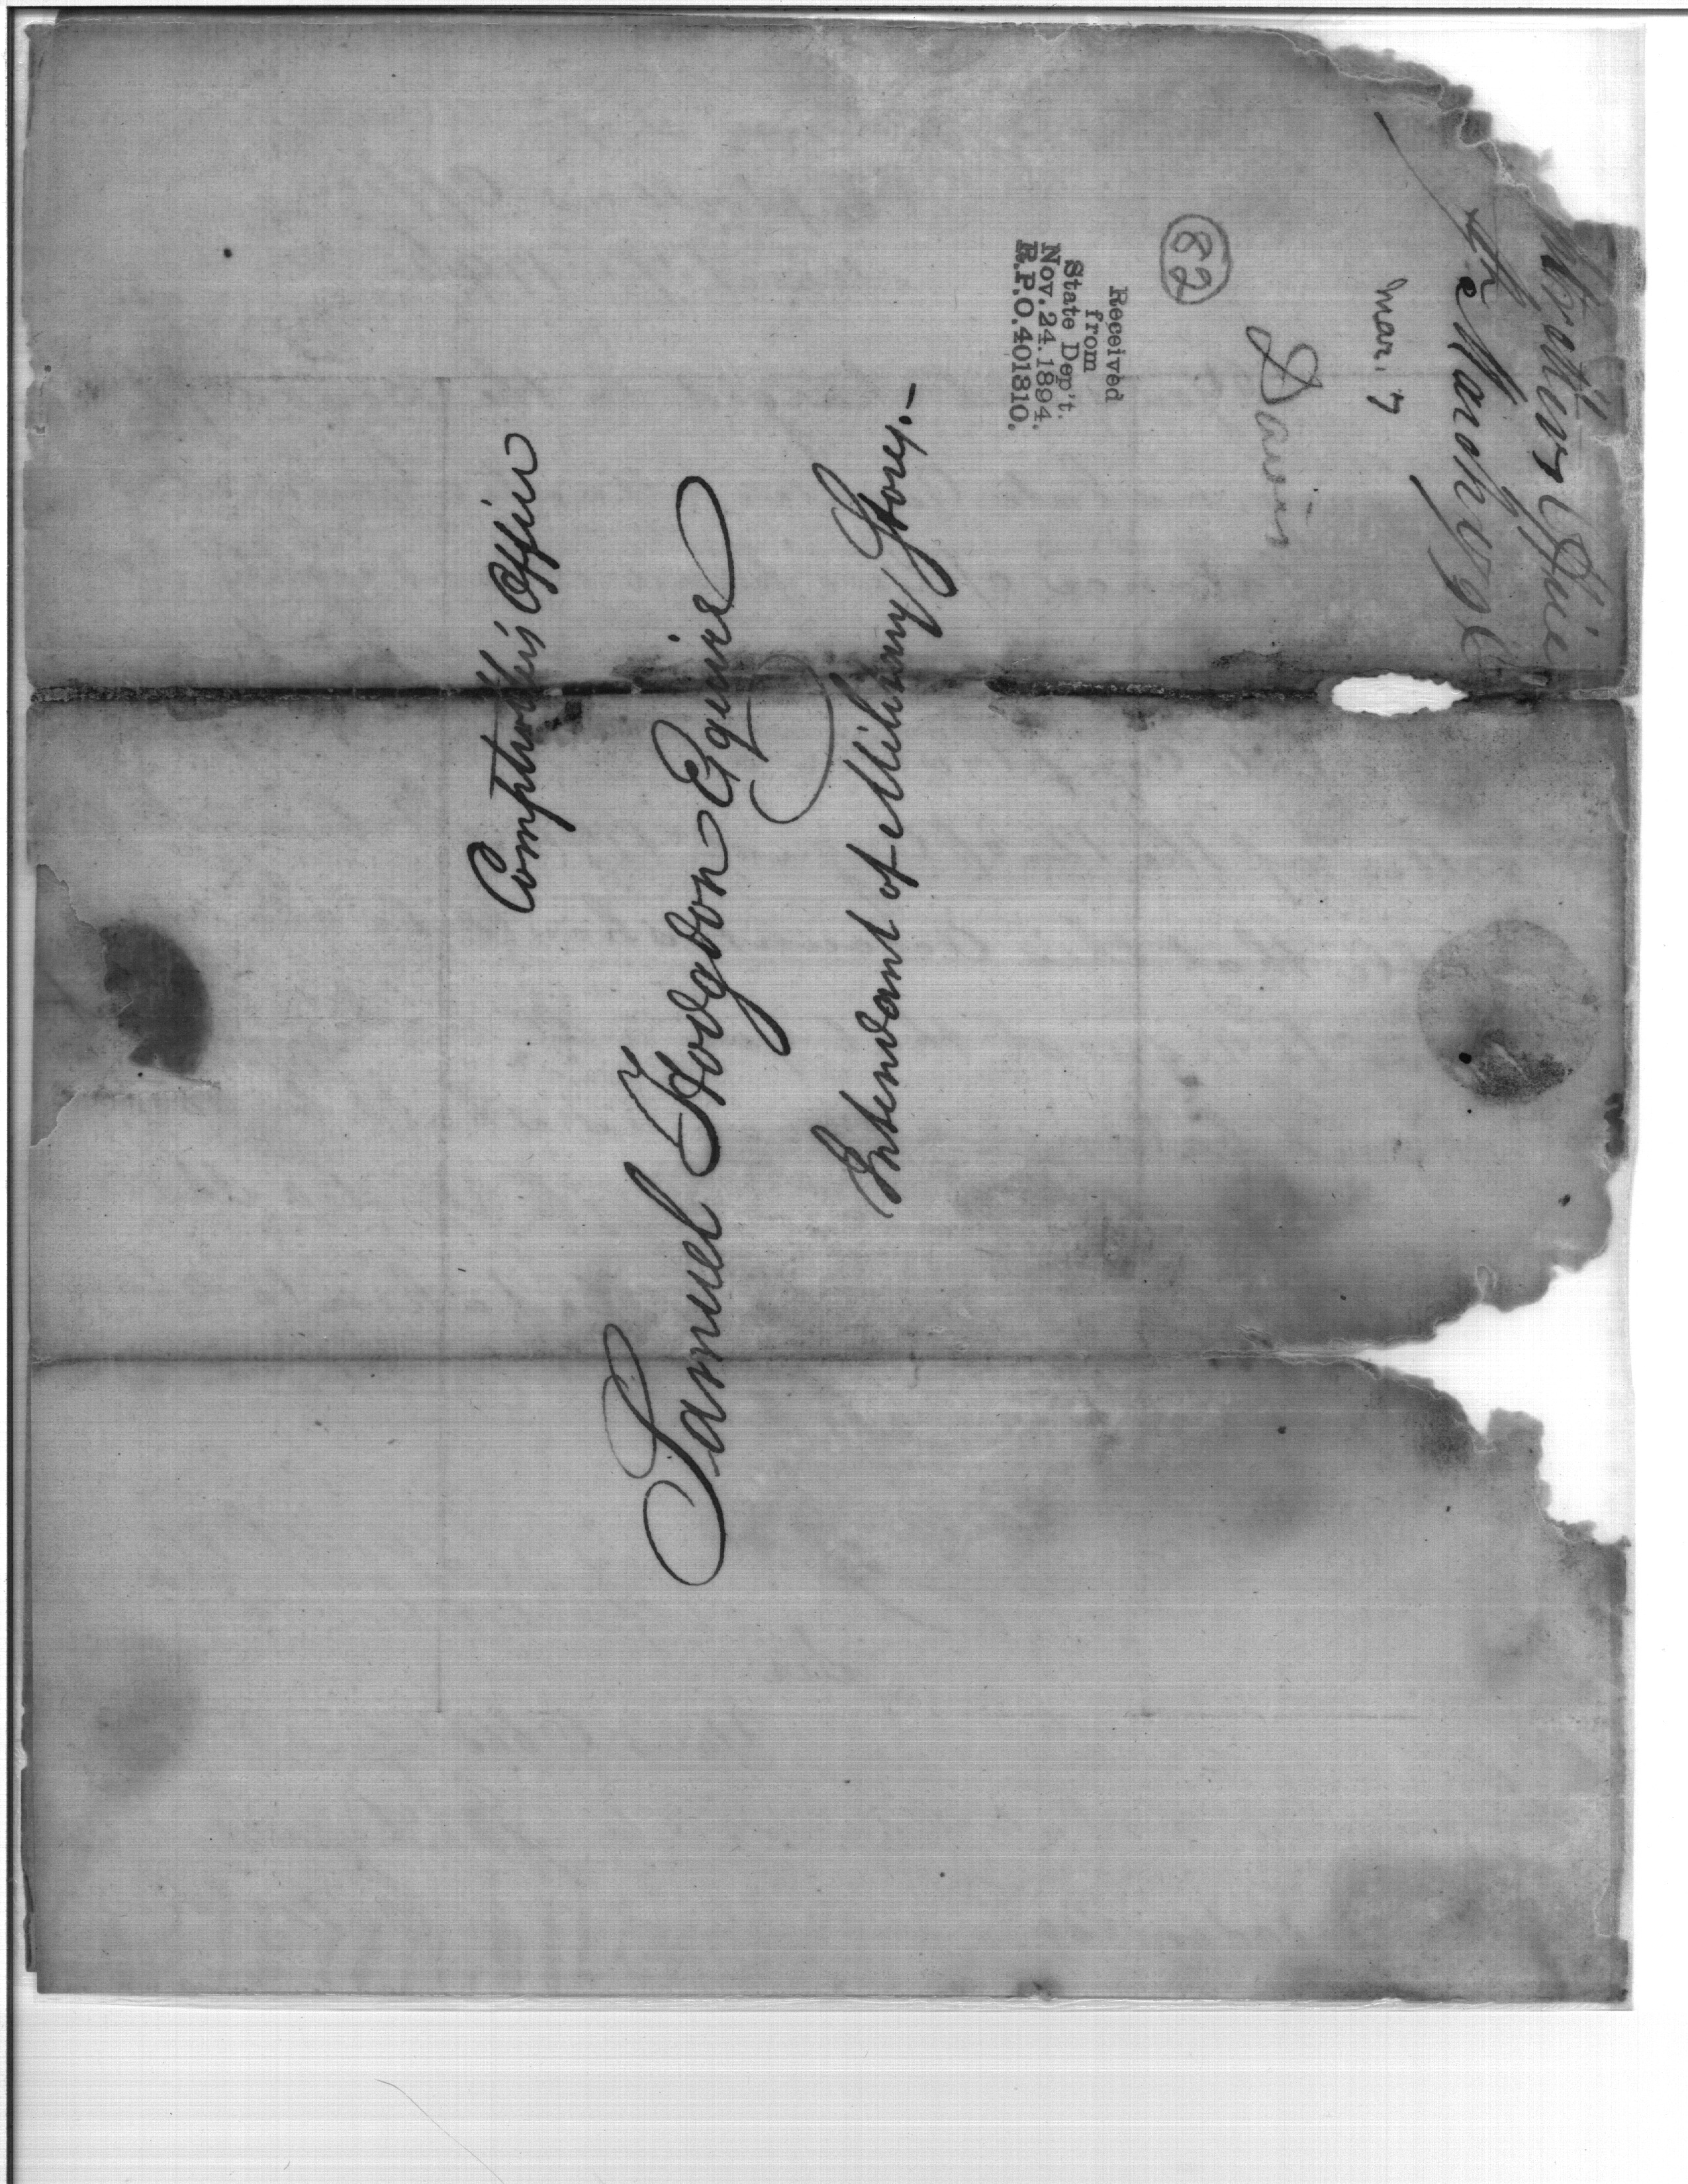 Comptroller's Office
Samuel Hodgdon Esquire
Intendant of Military Stores.—
Comptrollers Office
7th March 1796
Mar. 7
Davis
82
Received
from
State Dep't.
Nov. 24. 1894.
R.P.O. 401810.